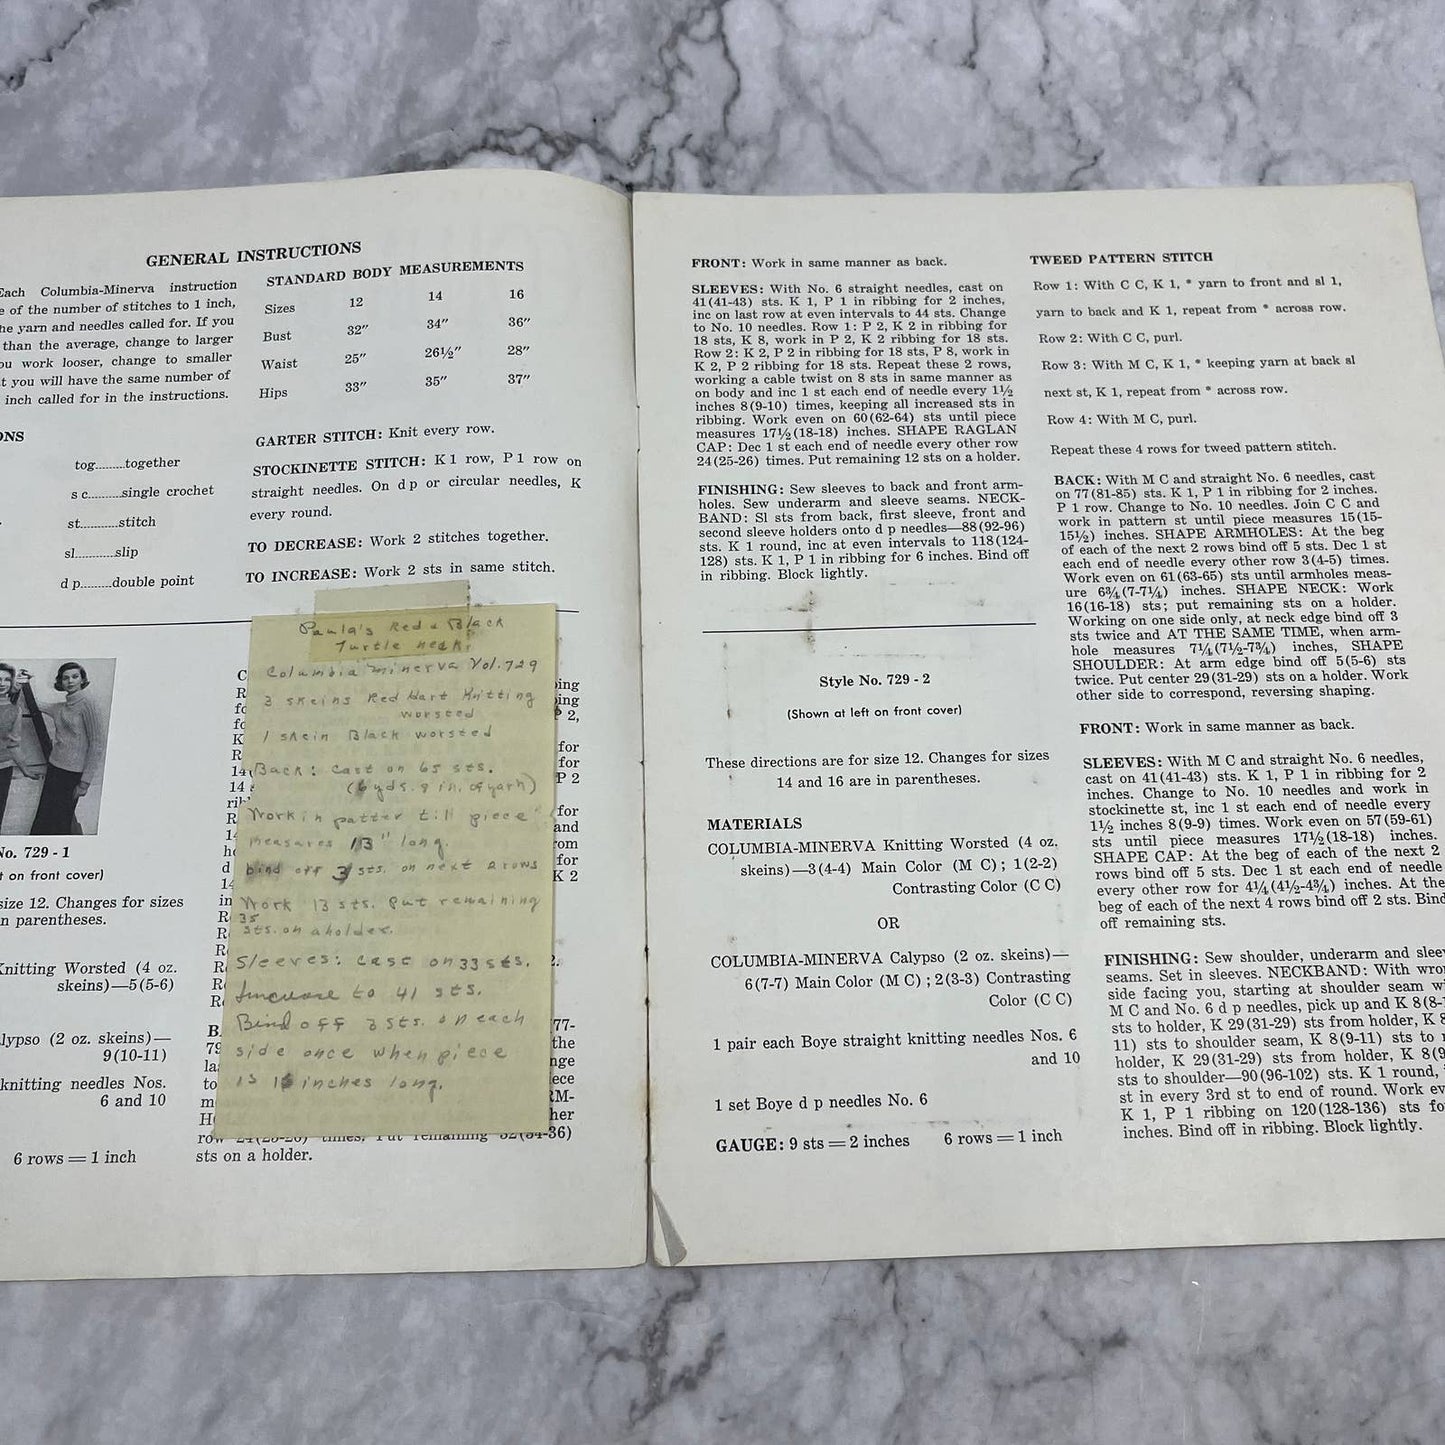 GENERAL INSTRUCTIONS
Each Columbia-Minerva instruction
e of the number of stitches to 1 inch,
he yarn and needles called for. If you
than the average, change to larger
ou work looser, change to smaller
t you will have the same number of
inch called for in the instructions.
ONS
tog.........together
s c..........single crochet
st...........stitch
sl...........slip
d p........double point
STANDARD BODY MEASUREMENTS
Sizes 12 14 16
Bust 32" 34" 36"
Waist 25" 26½" 28"
Hips 33" 35" 37"
GARTER STITCH: Knit every row.
STOCKINETTE STITCH: K 1 row, P 1 row on
straight needles. On d p or circular needles, K
every round.
TO DECREASE: Work 2 stitches together.
TO INCREASE: Work 2 sts in same stitch.
No. 729 - 1
t on front cover)
size 12. Changes for sizes
n parentheses.
Knitting Worsted (4 oz.
skeins)—5(5-6)
lypso (2 oz. skeins)—
9(10-11)
knitting needles Nos.
6 and 10
6 rows = 1 inch
Paula's Red & Black
Turtle neck.
Columbia Minerva Vol. 729
3 skeins Red Hart Knitting
worsted
1 skein Black worsted
Back: Cast on 65 sts.
(6 yds. 8 in. of yarn)
Work in patter till piece
measures 13" long.
bind off 3 sts. on next 2 rows
Work 13 sts. Put remaining
35
sts. on a holder.
Sleeves: Cast on 33 sts.
Increase to 41 sts.
Bind off 3 sts. on each
side once when piece
is inches long.
sts on a holder.
FRONT: Work in same manner as back.
SLEEVES: With No. 6 straight needles, cast on
41(41-43) sts. K 1, P 1 in ribbing for 2 inches,
inc on last row at even intervals to 44 sts. Change
to No. 10 needles. Row 1: P 2, K 2 in ribbing for
18 sts, K 8, work in P 2, K 2 ribbing for 18 sts.
Row 2: K 2, P 2 in ribbing for 18 sts, P 8, work in
K 2, P 2 ribbing for 18 sts. Repeat these 2 rows,
working a cable twist on 8 sts in same manner as
on body and inc 1 st each end of needle every 1½
inches 8(9-10) times, keeping all increased sts in
ribbing. Work even on 60(62-64) sts until piece
measures 17½(18-18) inches. SHAPE RAGLAN
CAP: Dec 1 st each end of needle every other row
24(25-26) times. Put remaining 12 sts on a holder.
FINISHING: Sew sleeves to back and front arm-
holes. Sew underarm and sleeve seams. NECK-
BAND: Sl sts from back, first sleeve, front and
second sleeve holders onto d p needles—88(92-96)
sts. K 1 round, inc at even intervals to 118(124-
128) sts. K 1, P 1 in ribbing for 6 inches. Bind off
in ribbing. Block lightly.
Style No. 729 - 2
(Shown at left on front cover)
These directions are for size 12. Changes for sizes
14 and 16 are in parentheses.
MATERIALS
COLUMBIA-MINERVA Knitting Worsted (4 oz.
skeins)—3(4-4) Main Color (M C) ; 1(2-2)
Contrasting Color (C C)
OR
COLUMBIA-MINERVA Calypso (2 oz. skeins)—
6(7-7) Main Color (M C) ; 2(3-3) Contrasting
Color (C C)
1 pair each Boye straight knitting needles Nos. 6
and 10
1 set Boye d p needles No. 6
GAUGE: 9 sts = 2 inches 6 rows = 1 inch
TWEED PATTERN STITCH
Row 1: With C C, K 1, * yarn to front and sl 1,
yarn to back and K 1, repeat from * across row.
Row 2: With C C, purl.
Row 3: With M C, K 1, * keeping yarn at back sl
next st, K 1, repeat from * across row.
Row 4: With M C, purl.
Repeat these 4 rows for tweed pattern stitch.
BACK: With M C and straight No. 6 needles, cast
on 77(81-85) sts. K 1, P 1 in ribbing for 2 inches.
P 1 row. Change to No. 10 needles. Join C C and
work in pattern st until piece measures 15(15-
15½) inches. SHAPE ARMHOLES: At the beg
of each of the next 2 rows bind off 5 sts. Dec 1 st
each end of needle every other row 3(4-5) times.
Work even on 61(63-65) sts until armholes meas-
ure 6¾(7-7¼) inches. SHAPE NECK: Work
16(16-18) sts; put remaining sts on a holder.
Working on one side only, at neck edge bind off 3
sts twice and AT THE SAME TIME, when arm-
hole measures 7¼(7½-7¾) inches, SHAPE
SHOULDER: At arm edge bind off 5(5-6) sts
twice. Put center 29(31-29) sts on a holder. Work
other side to correspond, reversing shaping.
FRONT: Work in same manner as back.
SLEEVES: With M C and straight No. 6 needles,
cast on 41(41-43) sts. K 1, P 1 in ribbing for 2
inches. Change to No. 10 needles and work in
stockinette st, inc 1 st each end of needle every
1½ inches 8(9-9) times. Work even on 57(59-61)
sts until piece measures 17½(18-18) inches.
SHAPE CAP: At the beg of each of the next 2
rows bind off 5 sts. Dec 1 st each end of needle
every other row for 4¼(4½-4¾) inches. At the
beg of each of the next 4 rows bind off 2 sts. Bind
off remaining sts.
FINISHING: Sew shoulder, underarm and slee
seams. Set in sleeves. NECKBAND: With wro
side facing you, starting at shoulder seam w
M C and No. 6 d p needles, pick up and K 8(8-
sts to holder, K 29(31-29) sts from holder, K 8
11) sts to shoulder seam, K 8(9-11) sts to
holder, K 29(31-29) sts from holder, K 8(9
sts to shoulder—90(96-102) sts. K 1 round,
st in every 3rd st to end of round. Work ev
K 1, P 1 ribbing on 120(128-136) sts fo
inches. Bind off in ribbing. Block lightly.